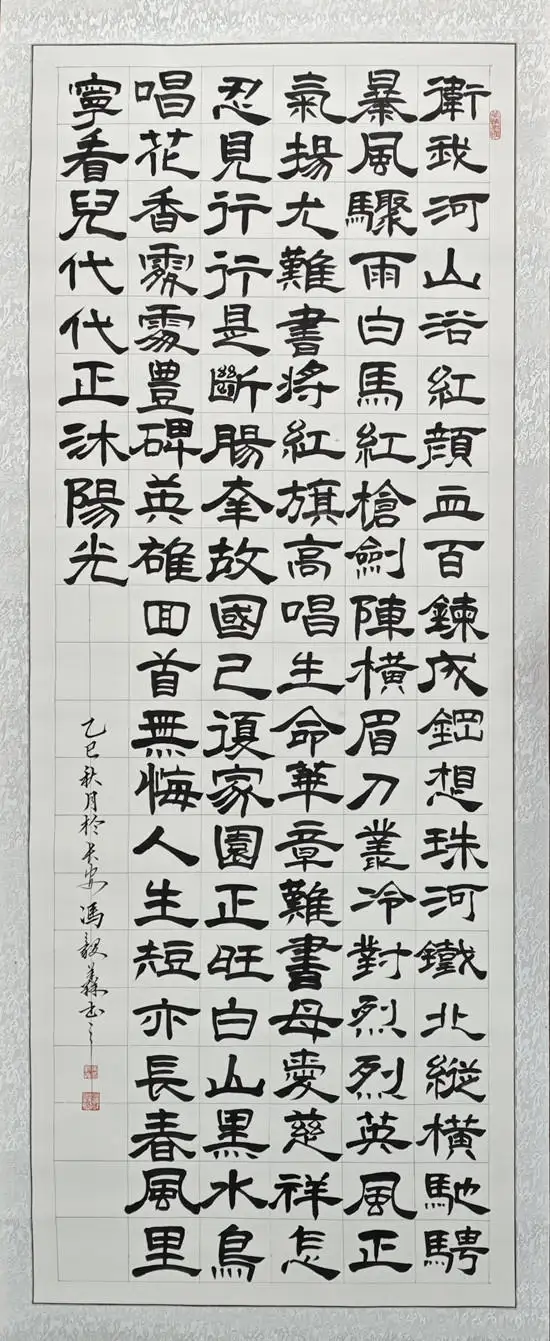 衛我河山浴紅顏血百鍊成鋼想珠河鐵北縱橫馳騁
暴風驟雨白馬紅槍劍陣橫眉刀叢冷對烈烈英風正
氣揚尤難書將紅旗高唱生命華章難書母愛慈祥怎
忍見行行是斷腸奎故國已復家園正旺白山黑水鳥
唱花香霧雾豊碑英雄回首無悔人生短亦長春風里
寧看兒代代正沐陽光
乙巳秋月於長安馮毅森书之